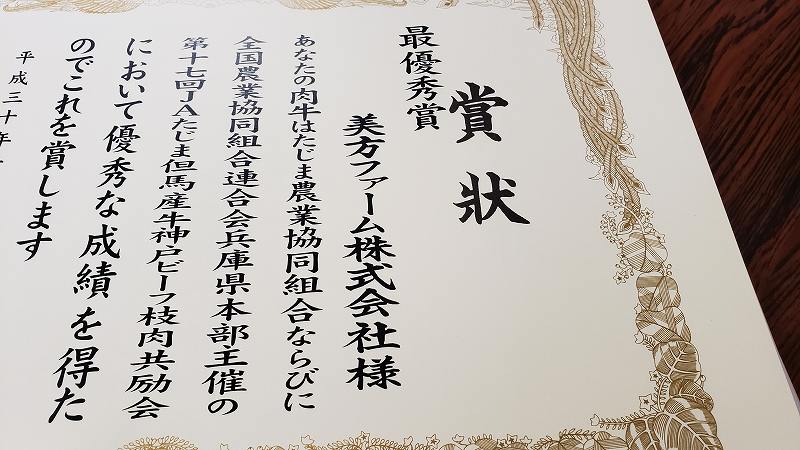 賞状
最優秀賞
美方ファーム株式会社様
あなたの肉牛はたじま農業協同組合ならびに
全国農業協同組合連合会兵庫県本部主催の
第十七回JAたじま但馬産牛神戸ビーフ枝肉共励会
において優秀な成績を得た
のでこれを賞します
平成三十年